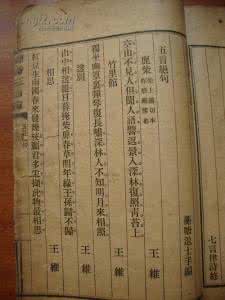 七言律詩
蘅塘退士手編
五言絕句
鹿柴 王維
空山不見人但聞人語響返景入深林復照青苔上
竹里館 王維
獨坐幽篁裏彈琴復長嘯深林人不知明月來相照
送別 王維
山中相送罷日暮掩柴扉春草明年綠王孫歸不歸
相思 王維
紅豆生南國春來發幾枝勸君多采擷此物最相思